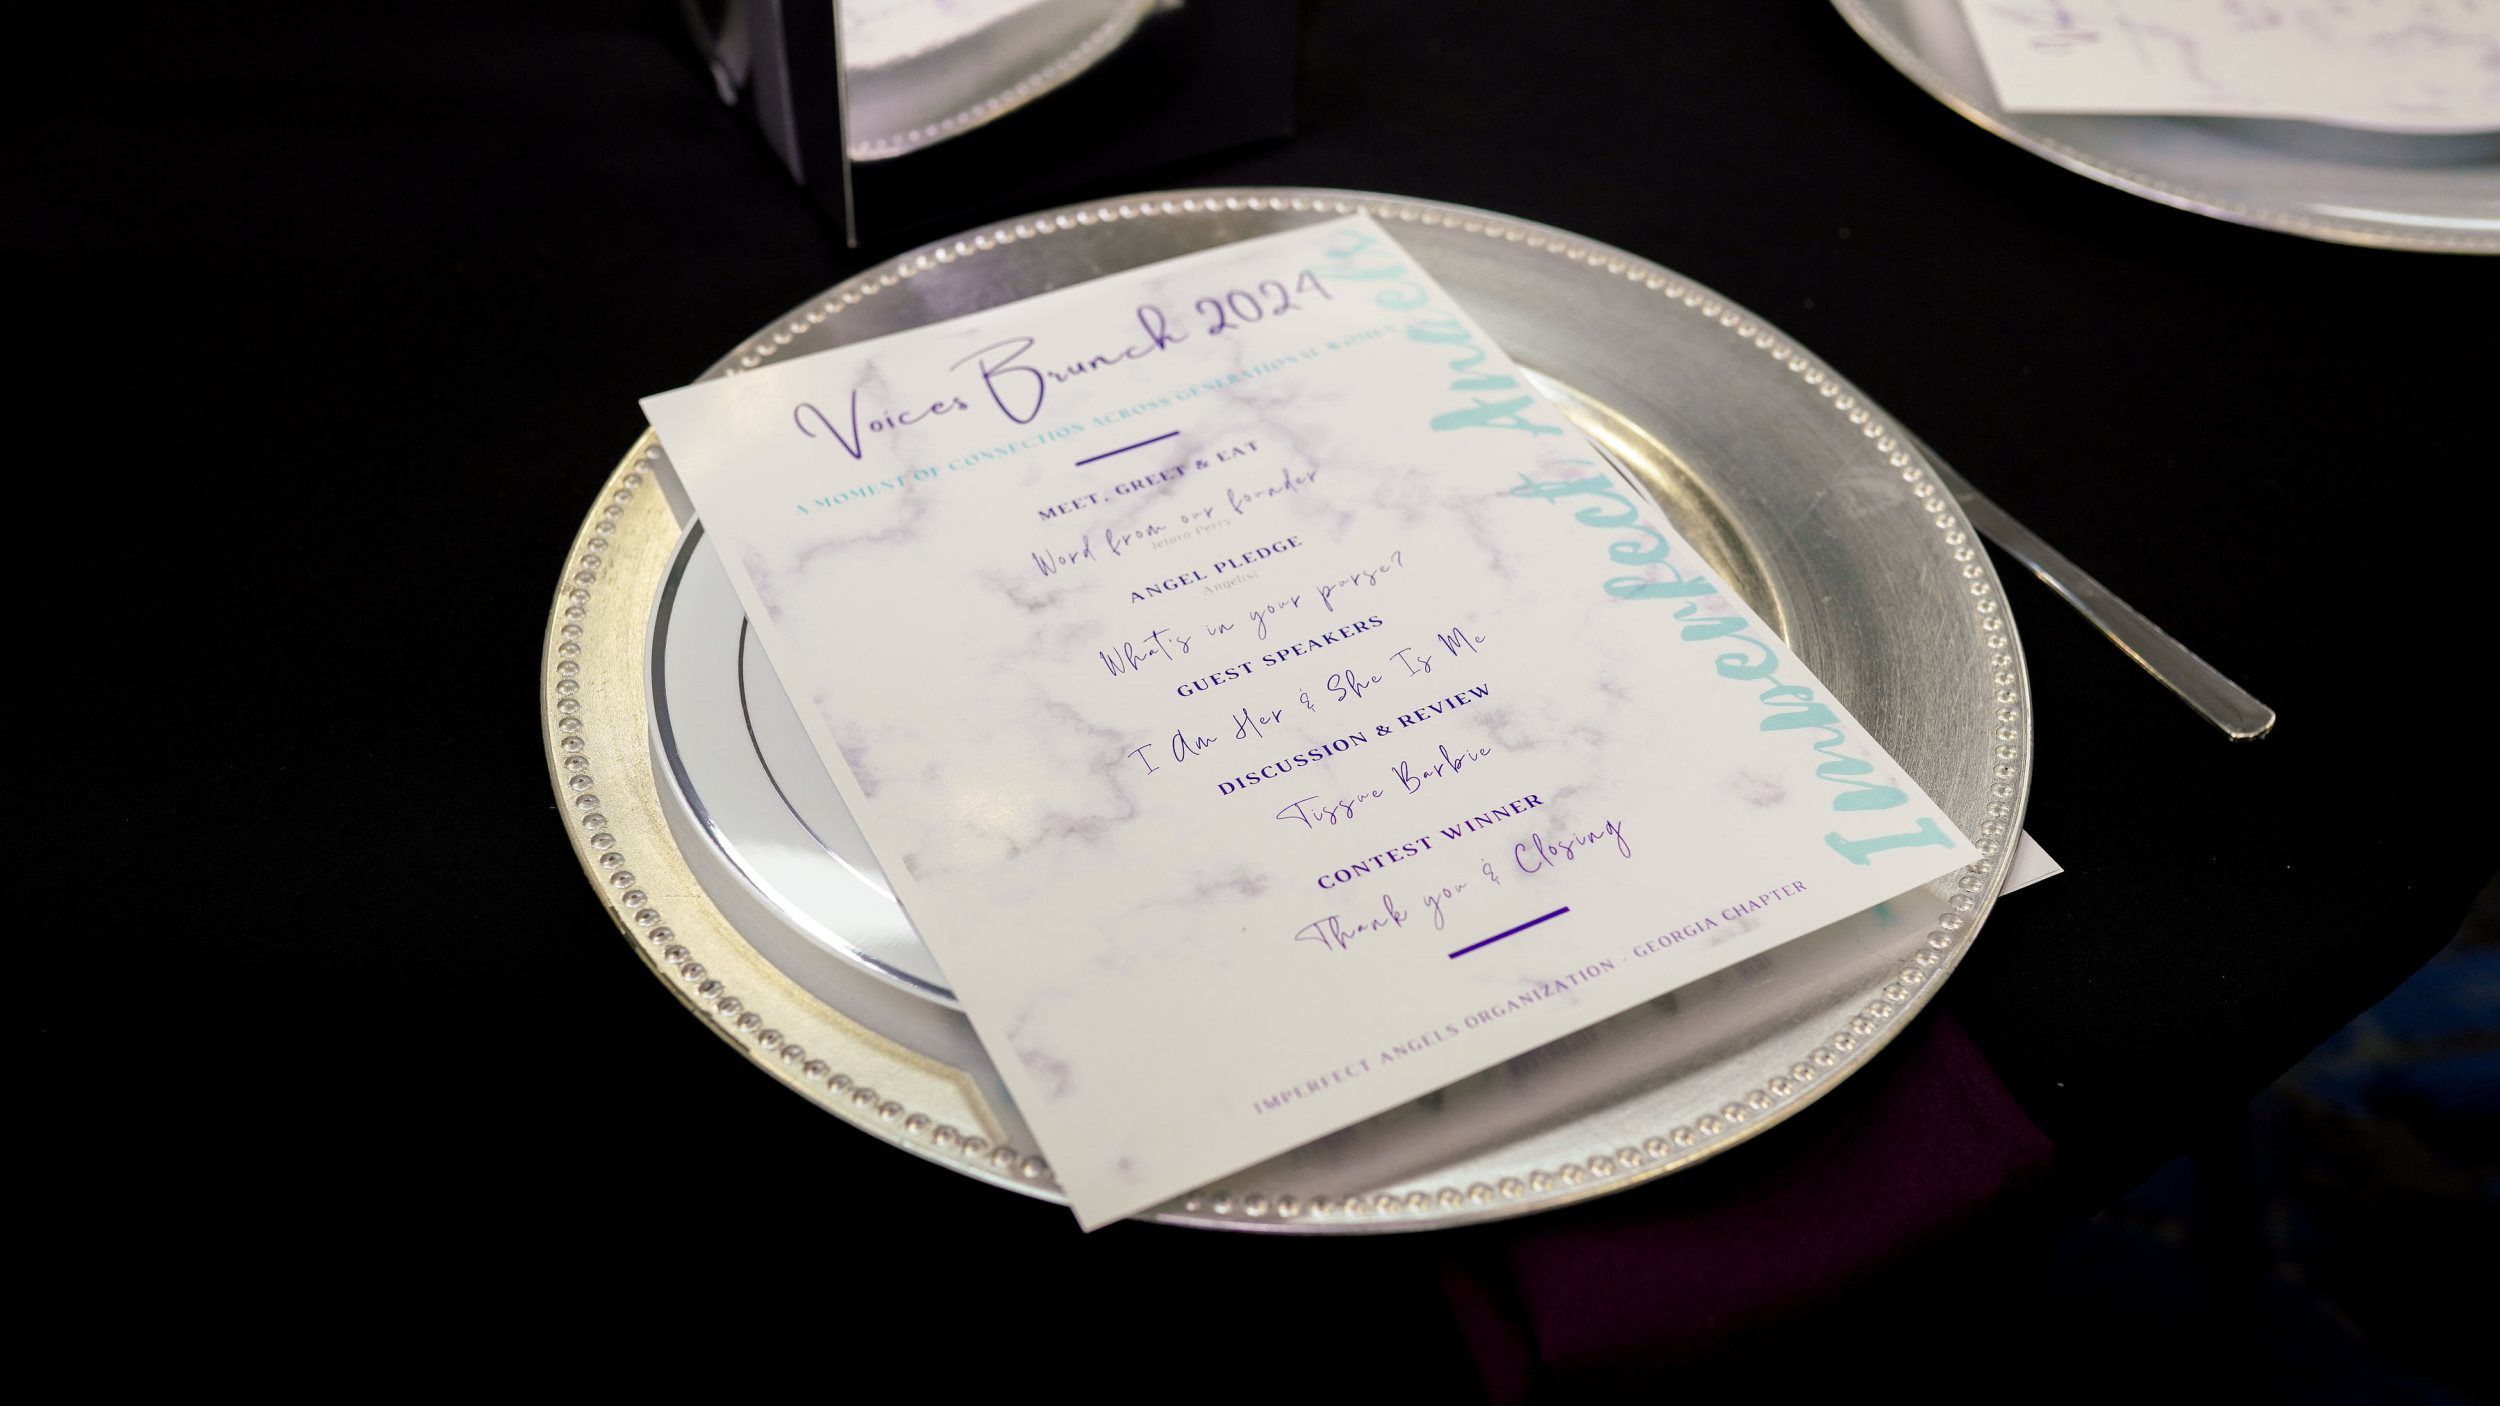 Voices Brunch 2024
A MOMENT OF CONNECTION ACROSS GENERATIONAL WOMEN
MEET, GREET & EAT
Word from our founder
Perry
ANGEL PLEDGE
Angel(s)
What's in your purse?
GUEST SPEAKERS
I Am Her & She Is Me
DISCUSSION & REVIEW
Tissue Barbie
CONTEST WINNER
Thank you & Closing
IMPERFECT ANGELS ORGANIZATION - GEORGIA CHAPTER
Imperfect Angels